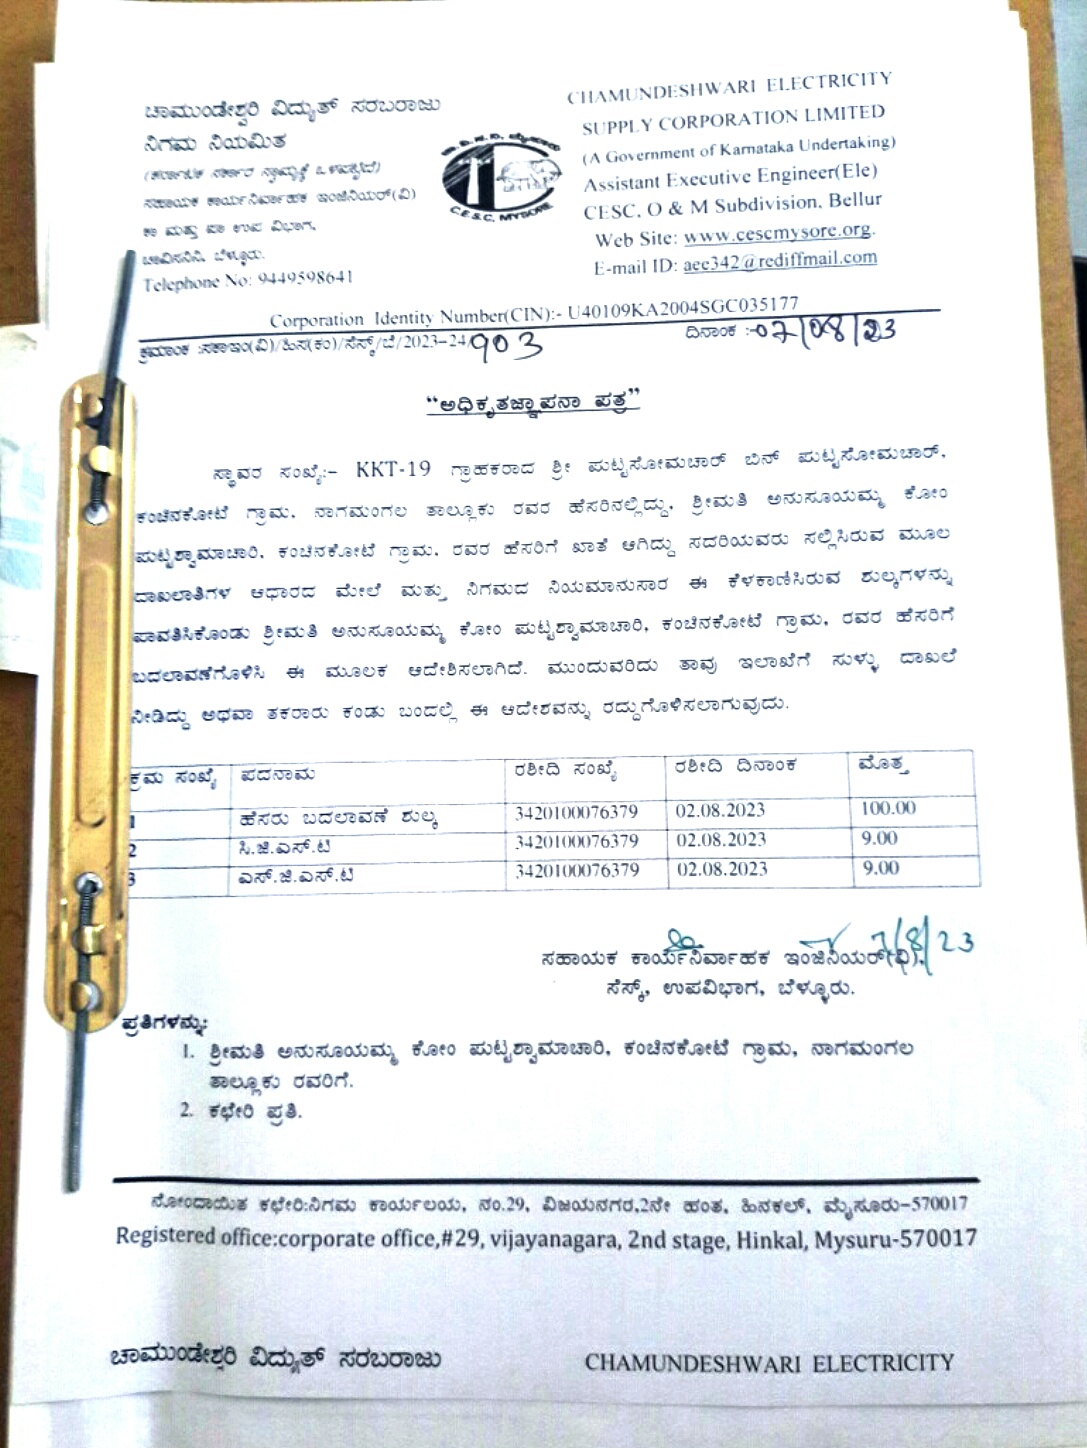 ಚಾಮುಂಡೇಶ್ವರಿ ವಿದ್ಯುತ್ ಸರಬರಾಜು
ನಿಗಮ ನಿಯಮಿತ
(ಕರ್ನಾಟಕ ಸರ್ಕಾರ ಸ್ವಾಮ್ಯಕ್ಕೆ ಒಳಪಟ್ಟಿದೆ)
ಸಹಾಯಕ ಕಾರ್ಯನಿರ್ವಾಹಕ ಇಂಜಿನಿಯರ್(ವಿ)
ಕಾ ಮತ್ತು ಪಾ ಉಪ ವಿಭಾಗ,
ಚಾವಿಸನಿನಿ, ಬೆಳ್ಳೂರು.
Telephone No: 9449598641
C.E.S.C, MYSORE
CHAMUNDESHWARI ELECTRICITY
SUPPLY CORPORATION LIMITED
(A Government of Karnataka Undertaking)
Assistant Executive Engineer(Ele)
CESC, O & M Subdivision, Bellur
Web Site: www.cescmysore.org.
E-mail ID: aee342@rediffmail.com
Corporation Identity Number(CIN):- U40109KA2004SGC035177
ಕ್ರಮಾಂಕ :ಸಕಾಇಂ(ವಿ)/ಹಿಸ(ಕಂ)/ಸೆಸ್ಕ್/ಬೆ/2023-24/903 ದಿನಾಂಕ :-07/08/23
“ಅಧಿಕೃತಜ್ಞಾಪನಾ ಪತ್ರ”
ಸ್ಥಾವರ ಸಂಖ್ಯೆ:- KKT-19 ಗ್ರಾಹಕರಾದ ಶ್ರೀ ಪುಟ್ಟಸೋಮಚಾರ್ ಬಿನ್ ಪುಟ್ಟಸೋಮಚಾರ್,
ಕಂಚಿನಕೋಟೆ ಗ್ರಾಮ, ನಾಗಮಂಗಲ ತಾಲ್ಲೂಕು ರವರ ಹೆಸರಿನಲ್ಲಿದ್ದು, ಶ್ರೀಮತಿ ಅನುಸೂಯಮ್ಮ ಕೋಂ
ಪುಟ್ಟಶ್ವಾಮಾಚಾರಿ, ಕಂಚಿನಕೋಟೆ ಗ್ರಾಮ, ರವರ ಹೆಸರಿಗೆ ಖಾತೆ ಆಗಿದ್ದು ಸದರಿಯವರು ಸಲ್ಲಿಸಿರುವ ಮೂಲ
ದಾಖಲಾತಿಗಳ ಆಧಾರದ ಮೇಲೆ ಮತ್ತು ನಿಗಮದ ನಿಯಮಾನುಸಾರ ಈ ಕೆಳಕಾಣಿಸಿರುವ ಶುಲ್ಕಗಳನ್ನು
ಪಾವತಿಸಿಕೊಂಡು ಶ್ರೀಮತಿ ಅನುಸೂಯಮ್ಮ ಕೋಂ ಪುಟ್ಟಶ್ವಾಮಾಚಾರಿ, ಕಂಚಿನಕೋಟೆ ಗ್ರಾಮ, ರವರ ಹೆಸರಿಗೆ
ಬದಲಾವಣೆಗೊಳಿಸಿ ಈ ಮೂಲಕ ಆದೇಶಿಸಲಾಗಿದೆ. ಮುಂದುವರಿದು ತಾವು ಇಲಾಖೆಗೆ ಸುಳ್ಳು ದಾಖಲೆ
ನೀಡಿದ್ದು ಅಥವಾ ತಕರಾರು ಕಂಡು ಬಂದಲ್ಲಿ ಈ ಆದೇಶವನ್ನು ರದ್ದುಗೊಳಿಸಲಾಗುವುದು.
ಕ್ರಮ ಸಂಖ್ಯೆ ಪದನಾಮ ರಶೀದಿ ಸಂಖ್ಯೆ ರಶೀದಿ ದಿನಾಂಕ ಮೊತ್ತ
1 ಹೆಸರು ಬದಲಾವಣೆ ಶುಲ್ಕ 3420100076379 02.08.2023 100.00
2 ಸಿ.ಜಿ.ಎಸ್.ಟಿ 3420100076379 02.08.2023 9.00
3 ಎಸ್.ಜಿ.ಎಸ್.ಟಿ 3420100076379 02.08.2023 9.00
7/8/23
ಸಹಾಯಕ ಕಾರ್ಯನಿರ್ವಾಹಕ ಇಂಜಿನಿಯರ್(ವಿ),
ಸೆಸ್ಕ್, ಉಪವಿಭಾಗ, ಬೆಳ್ಳೂರು.
ಪ್ರತಿಗಳನ್ನು:
1. ಶ್ರೀಮತಿ ಅನುಸೂಯಮ್ಮ ಕೋಂ ಪುಟ್ಟಶ್ವಾಮಾಚಾರಿ, ಕಂಚಿನಕೋಟೆ ಗ್ರಾಮ, ನಾಗಮಂಗಲ
ತಾಲ್ಲೂಕು ರವರಿಗೆ.
2. ಕಛೇರಿ ಪ್ರತಿ.
ನೋಂದಾಯಿತ ಕಛೇರಿ:ನಿಗಮ ಕಾರ್ಯಲಯ, ನಂ.29, ವಿಜಯನಗರ,2ನೇ ಹಂತ, ಹಿನಕಲ್, ಮೈಸೂರು-570017
Registered office:corporate office,#29, vijayanagara, 2nd stage, Hinkal, Mysuru-570017
ಚಾಮುಂಡೇಶ್ವರಿ ವಿದ್ಯುತ್ ಸರಬರಾಜು CHAMUNDESHWARI ELECTRICITY